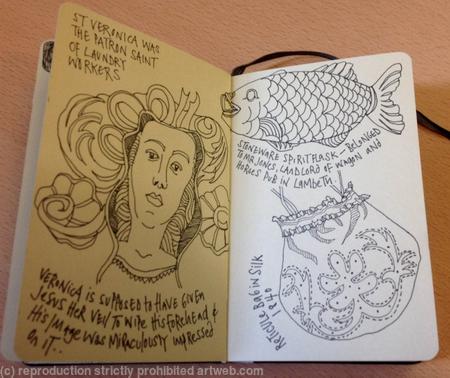 ST VERONICA WAS
THE PATRON SAINT
OF LAUNDRY
WORKERS
VERONICA IS SUPPOSED TO HAVE GIVEN
JESUS HER VEIL TO WIPE HIS FOREHEAD &
HIS IMAGE WAS MIRACULOUSLY IMPRESSED
ON IT..
STONEWARE SPIRIT FLASK - BELONGED
TO MR JONES, LANDLORD OF WAGON AND
HORSES PUB IN LAMBETH
RETICULE BAG IN SILK
(c) reproduction strictly prohibited artweb.com